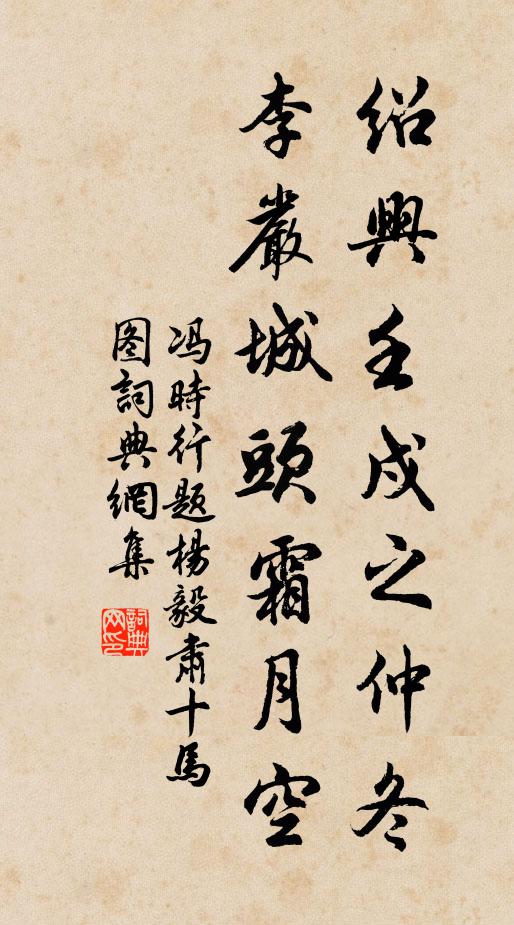 绍興壬戌之仲冬
李嚴城頭霜月空
冯時行题楊毅肅十馬
图詞典網集
詞典网印